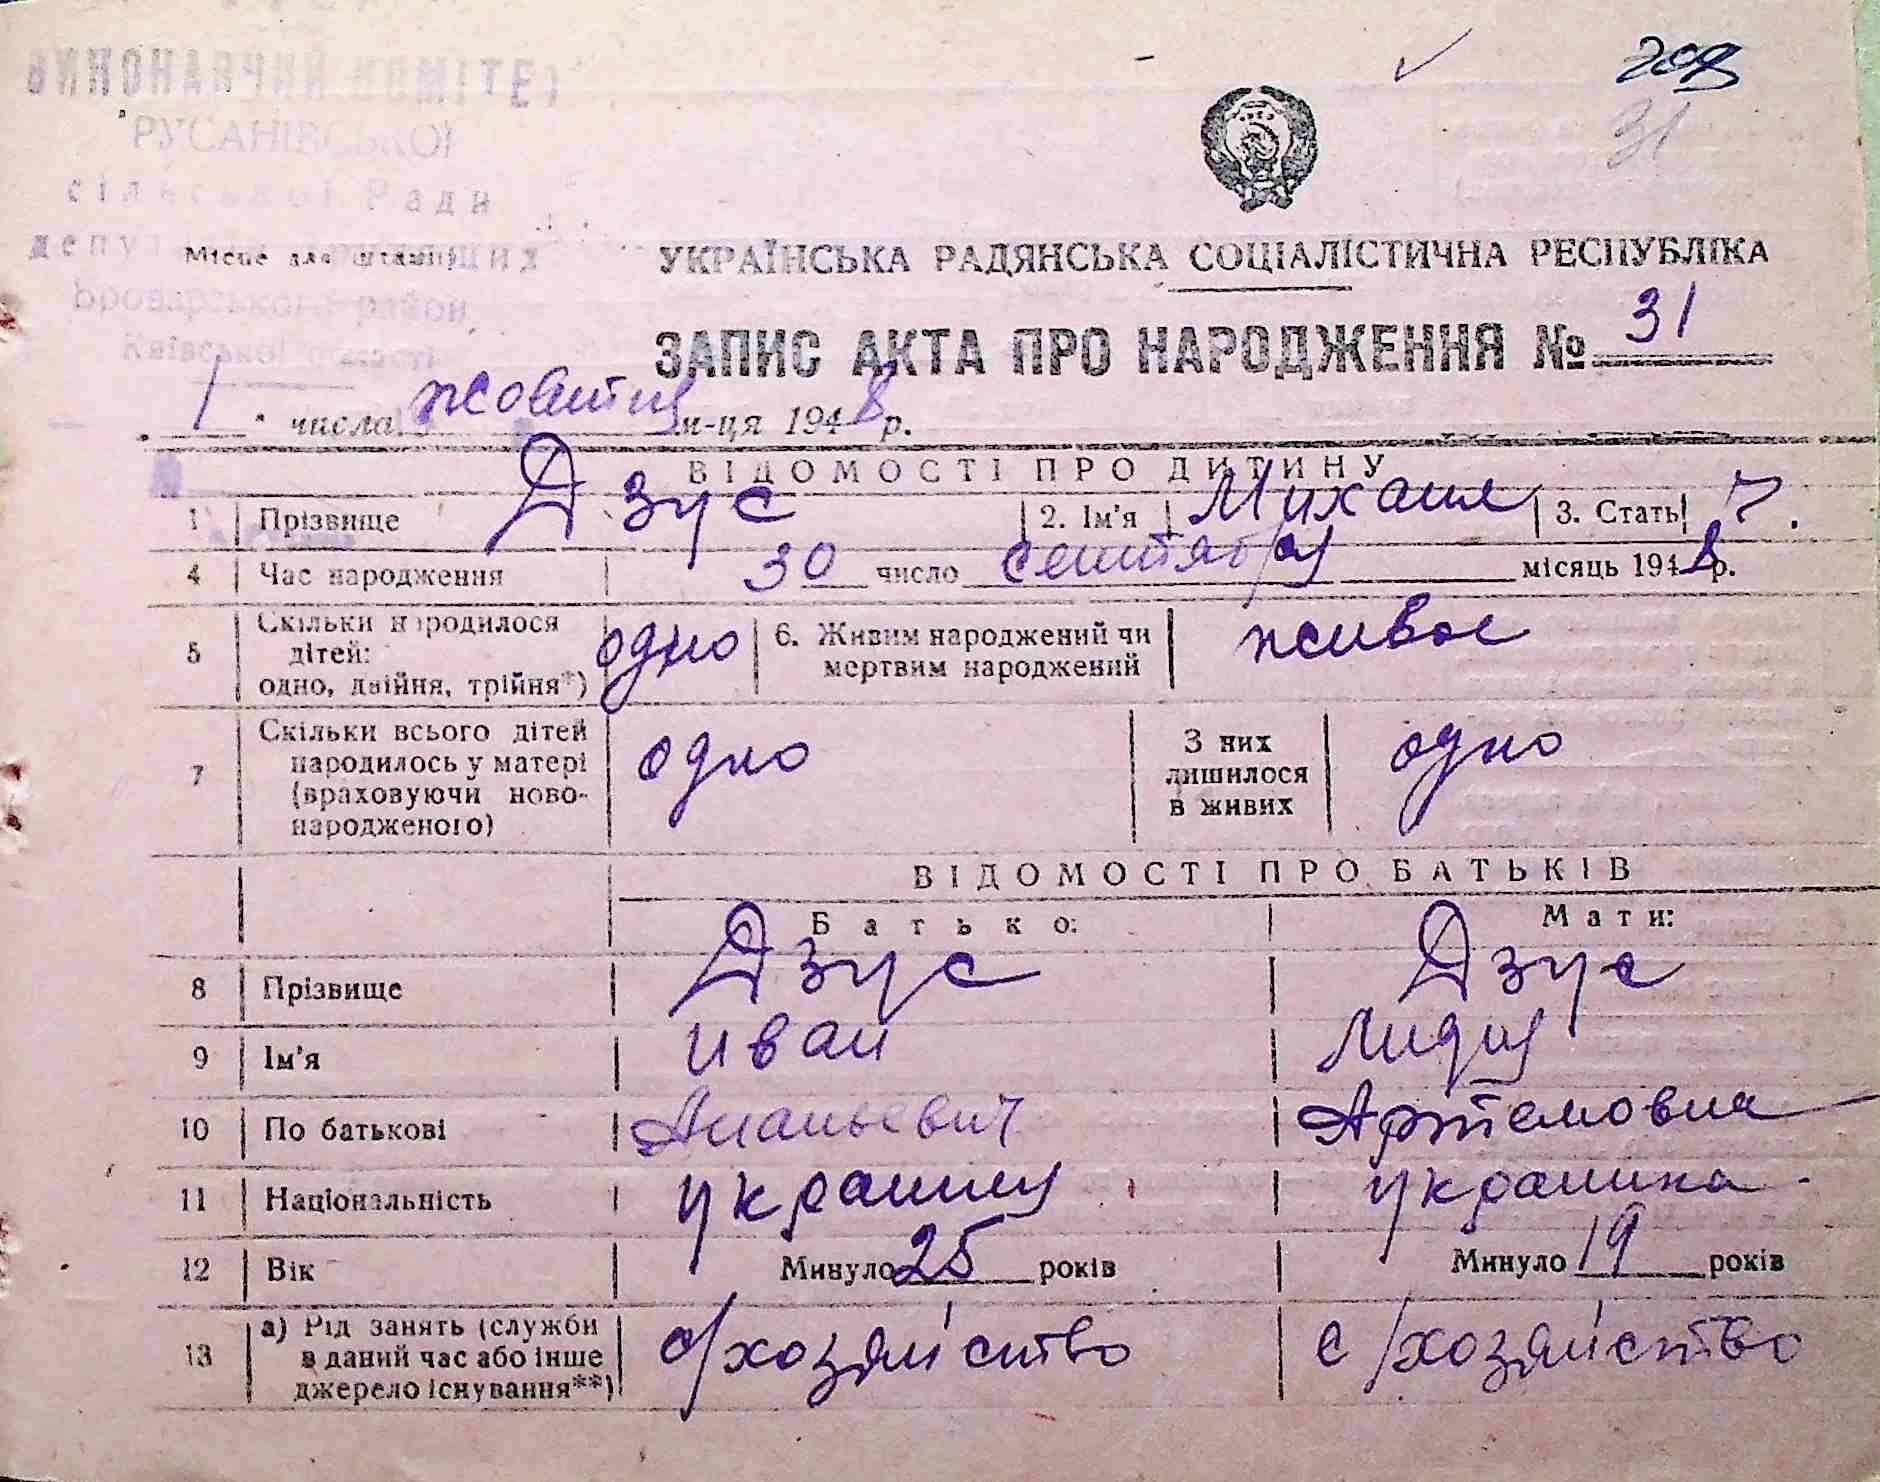 ВИКОНАВЧИЙ КОМІТЕТ
РУСАНІВСЬКОЇ
сільської Ради
депутатів трудящих
Місце для штампу
Броварського район
Київської області
31
УКРАЇНСЬКА РАДЯНСЬКА СОЦІАЛІСТИЧНА РЕСПУБЛІКА
ЗАПИС АКТА ПРО НАРОДЖЕННЯ № 31
1 числа жовтня м-ця 1948 р.
ВІДОМОСТІ ПРО ДИТИНУ
1 Прізвище Дзус 2. Ім'я Михаил 3. Стать Ч.
4 Час народження 30 число сентября місяць 1948 р.
5 Скільки народилося дітей: одно, двійня, трійня*) одно 6. Живим народжений чи мертвим народжений живое
7 Скільки всього дітей народилось у матері (враховуючи ново-народженого) одно З них лишилося в живих одно
ВІДОМОСТІ ПРО БАТЬКІВ
Батько: Мати:
8 Прізвище Дзус Дзус
9 Ім'я Иван Лидия
10 По батькові Ананьевич Артемовна
11 Національність украинец украинка
12 Вік Минуло 25 років Минуло 19 років
13 а) Рід занять (служби в даний час або інше джерело існування**) с/хозяйство с/хозяйство